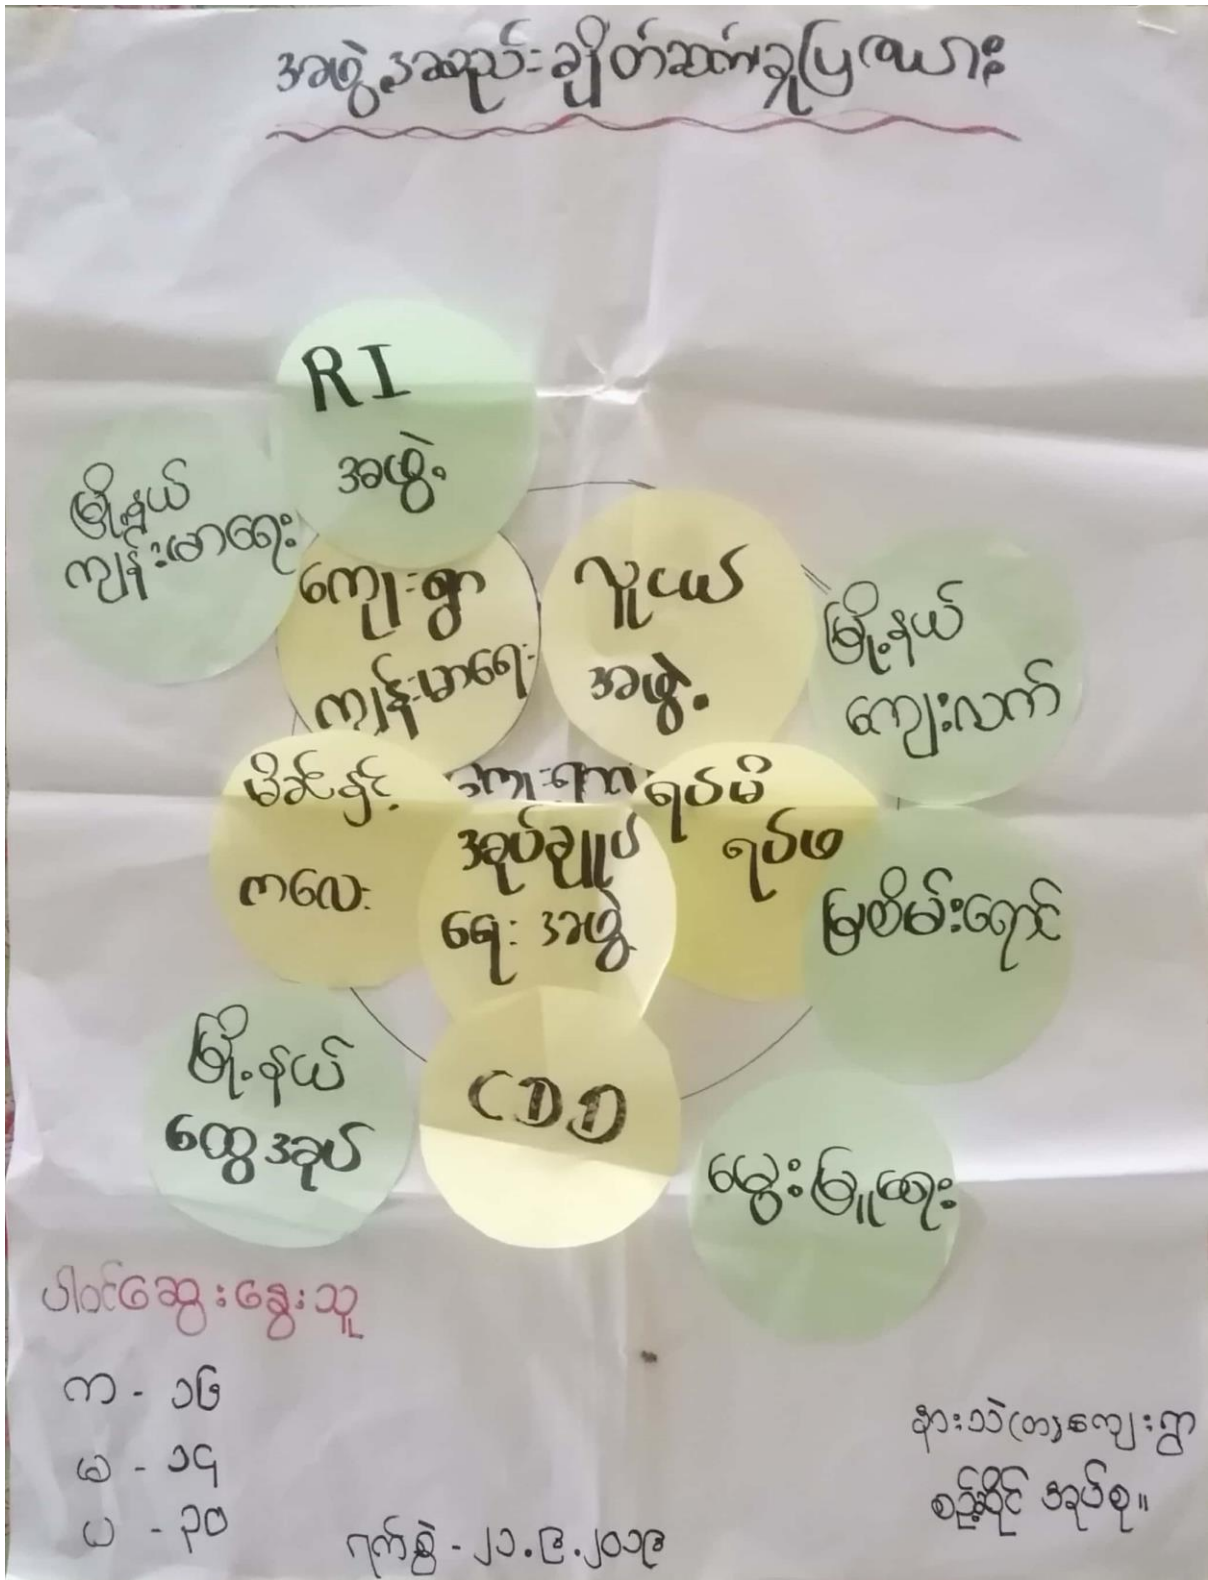 အဖွဲ့အစည်းချိတ်ဆက်မှုပြကားချပ်
RI
အဖွဲ့
မြို့နယ်
ကျန်းမာရေး
ကျေးရွာ
ကျန်းမာရေး
လူငယ်
အဖွဲ့
မြို့နယ်
ကျေးလက်
မိခင်နှင့်
ကလေး
ကျေးရွာ
အုပ်ချုပ်
ရေးအဖွဲ့
ရပ်မိ
ရပ်ဖ
မြစိမ်းရောင်
မြို့နယ်
ထွေအုပ်
CDD
မွေးမြူရေး
ပါဝင်ဆွေးနွေးသူ
က - ၁၆
မ - ၁၄
ပ - ၃၀
ရက်စွဲ - ၂၁.၉.၂၀၁၉
ကျေးရွာ
အုပ်စု။